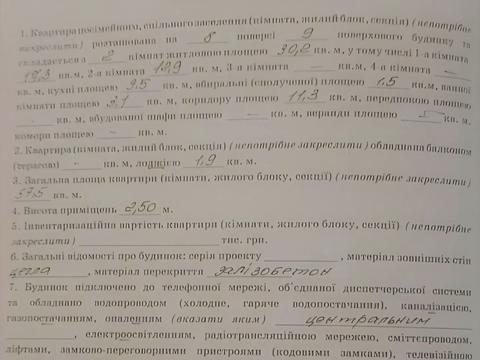 1. Квартира посімейного, спільного заселення (кімната, жилий блок, секція) (непотрібне
закреслити) розташована на 8 поверсі 9 поверхового будинку та
складається з 2 кімнат житловою площею 30,2 кв. м, у тому числі 1-а кімната
кв.м, 2-а кімната 12,9 кв. м, 3-а кімната - кв.м, 4-а кімната -
кв. м, кухні площею 9,5 кв. м, вбиральні (сполученої) площею 1,5 кв.м, ванної
кімнати площею 2,1 кв. м, коридору площею 11,3 кв. м, передпокою площею
- кв. м, вбудованої шафи площею - кв. м, веранди площею кв. м,
комори площею - кв. м.
2. Квартира (кімната, жилий блок, секція) (непотрібне закреслити) обладнана балконом
(терасою) - кв. м, лоджією 1,9 кв. м.
3. Загальна площа квартири (кімнати, жилого блоку, секції) (непотрібне закреслити)
57,5 кв. м.
4. Висота приміщень 2,50 м.
5. Інвентаризаційна вартість квартири (кімнати, жилого блоку, секції) (непотрібне
закреслити) ____ тис. грн.
6. Загальні відомості про будинок: серія проекту ____, матеріал зовнішніх стін
цегла, матеріал перекриття залізобетон
7. Будинок підключено до телефонної мережі, об'єднаної диспетчерської системи
та обладнано водопроводом (холодне, гаряче водопостачання), каналізацією,
газопостачанням, опаленням (вказати яким) центральним
____, електроосвітленням, радіотрансляційною мережею, сміттєпроводом,
ліфтами, замково-переговорними пристроями (кодовими замками), телевізійною